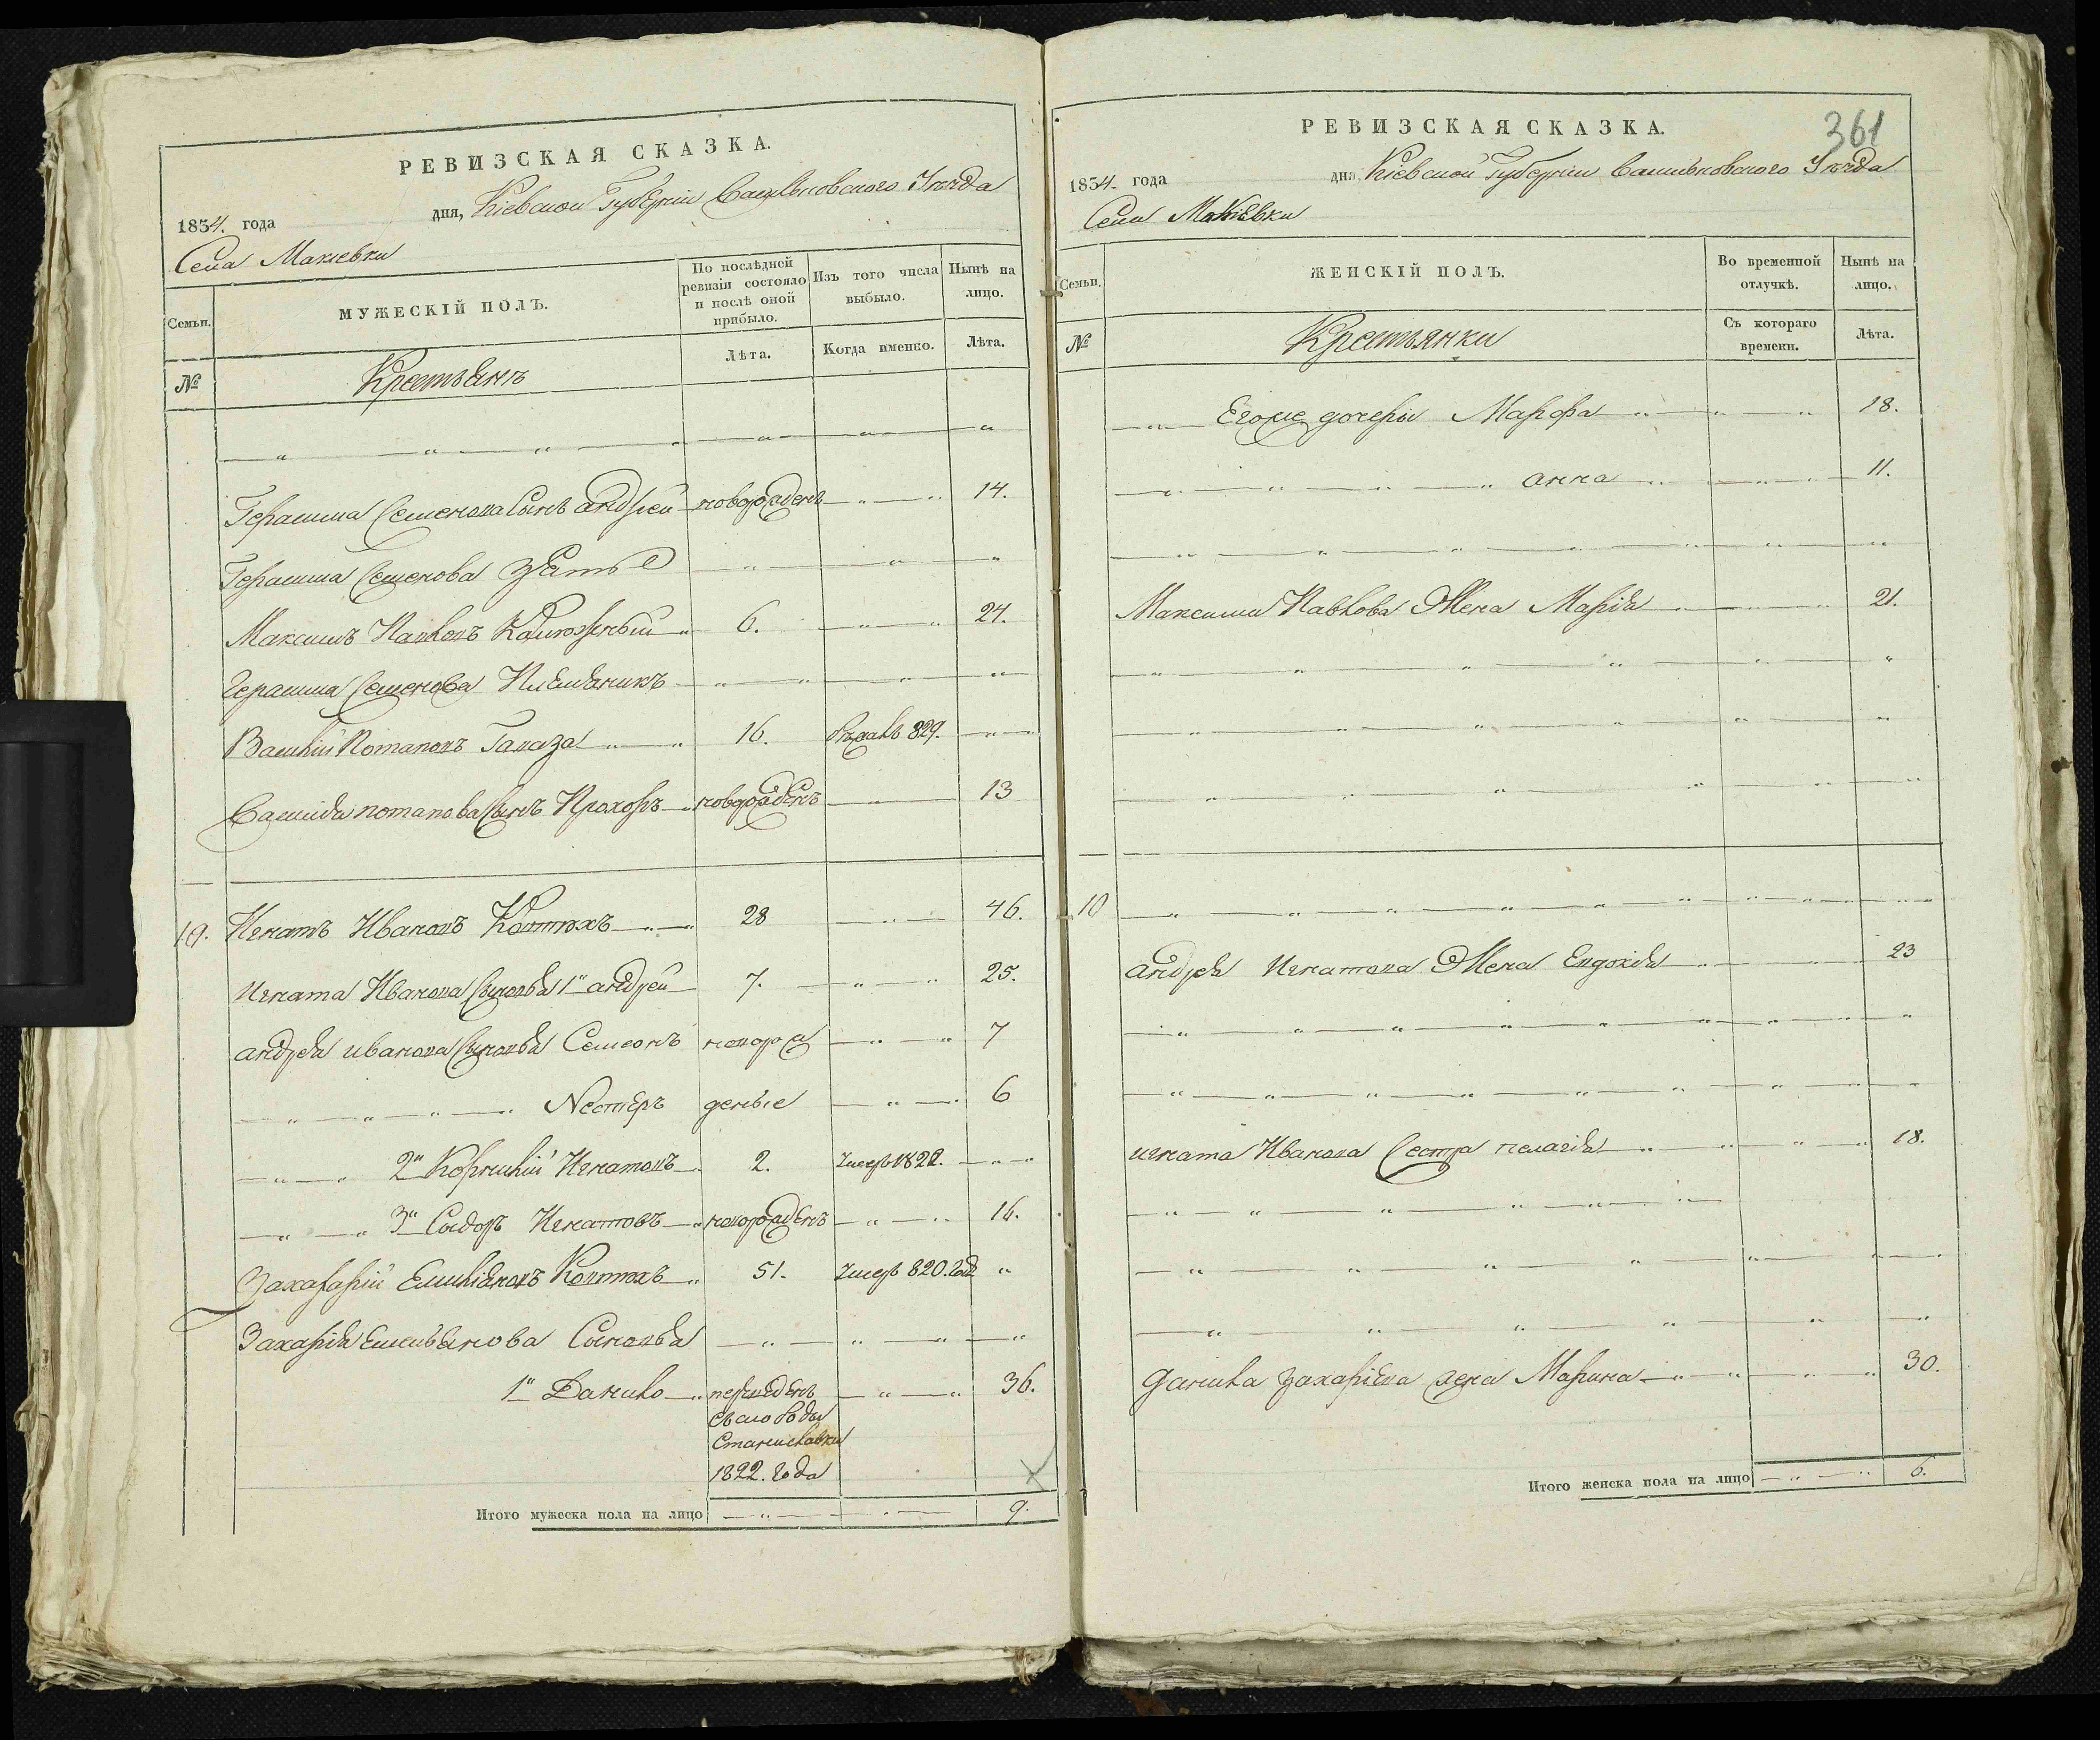 РЕВИЗСКАЯ СКАЗКА.
1834. года дня, Кіевской Губерніи Васильковского Уезда
Села Макіевки
Семьи. МУЖЕСКІЙ ПОЛЪ. По послѣдней ревизіи состояло и послѣ оной прибыло. Изъ того числа выбыло. Нынѣ на лицо.
№ Крестьянъ Лѣта. Когда именно. Лѣта.
Герасима Семенова Сынъ андрей новорожденъ 14.
Герасима Семенова зять
Максимъ Павловъ 6. 24.
Герасима Семенова Племеникъ
Василій Потаповъ 16. бежалъ 829.
Василія потапова Сынъ Прохоръ новорожденъ 13
10. Игнатъ Ивановъ Ковтюхъ 28 46.
Игната Иванова Сыновья 1й андрей 7. 25.
андрея иванова Сыновья Семеонъ новорож 7
Нестеръ деные 6
2й Корнилій Игнатовъ 2. Умеръ 1822.
3й Сидоръ Игнатовъ новорожденъ 16.
Захарій Емиліановъ Ковтюхъ 51. Умеръ 820. года
Захарія Емельянова Сыновья
1й Данило переведенъ 36.
слободы
Станиславки
1822. года
Итого мужеска пола на лицо 9.
РЕВИЗСКАЯ СКАЗКА.
361
1834. года дня Кіевской Губерніи Васильковского Уезда
Села Макіевки
Семьи. ЖЕНСКІЙ ПОЛЪ. Во временной отлучкѣ. Нынѣ на лицо.
№ Крестьянки Съ котораго времени. Лѣта.
Егоже дочеры Марфа 18.
анна 11.
Максима Павлова Жена Марія 21.
10
андрея Игнатова Жена Евдокія 23
игната Иванова Сестра пелагія 18.
данила захаріева жена Марина 30.
Итого женска пола на лицо 6.